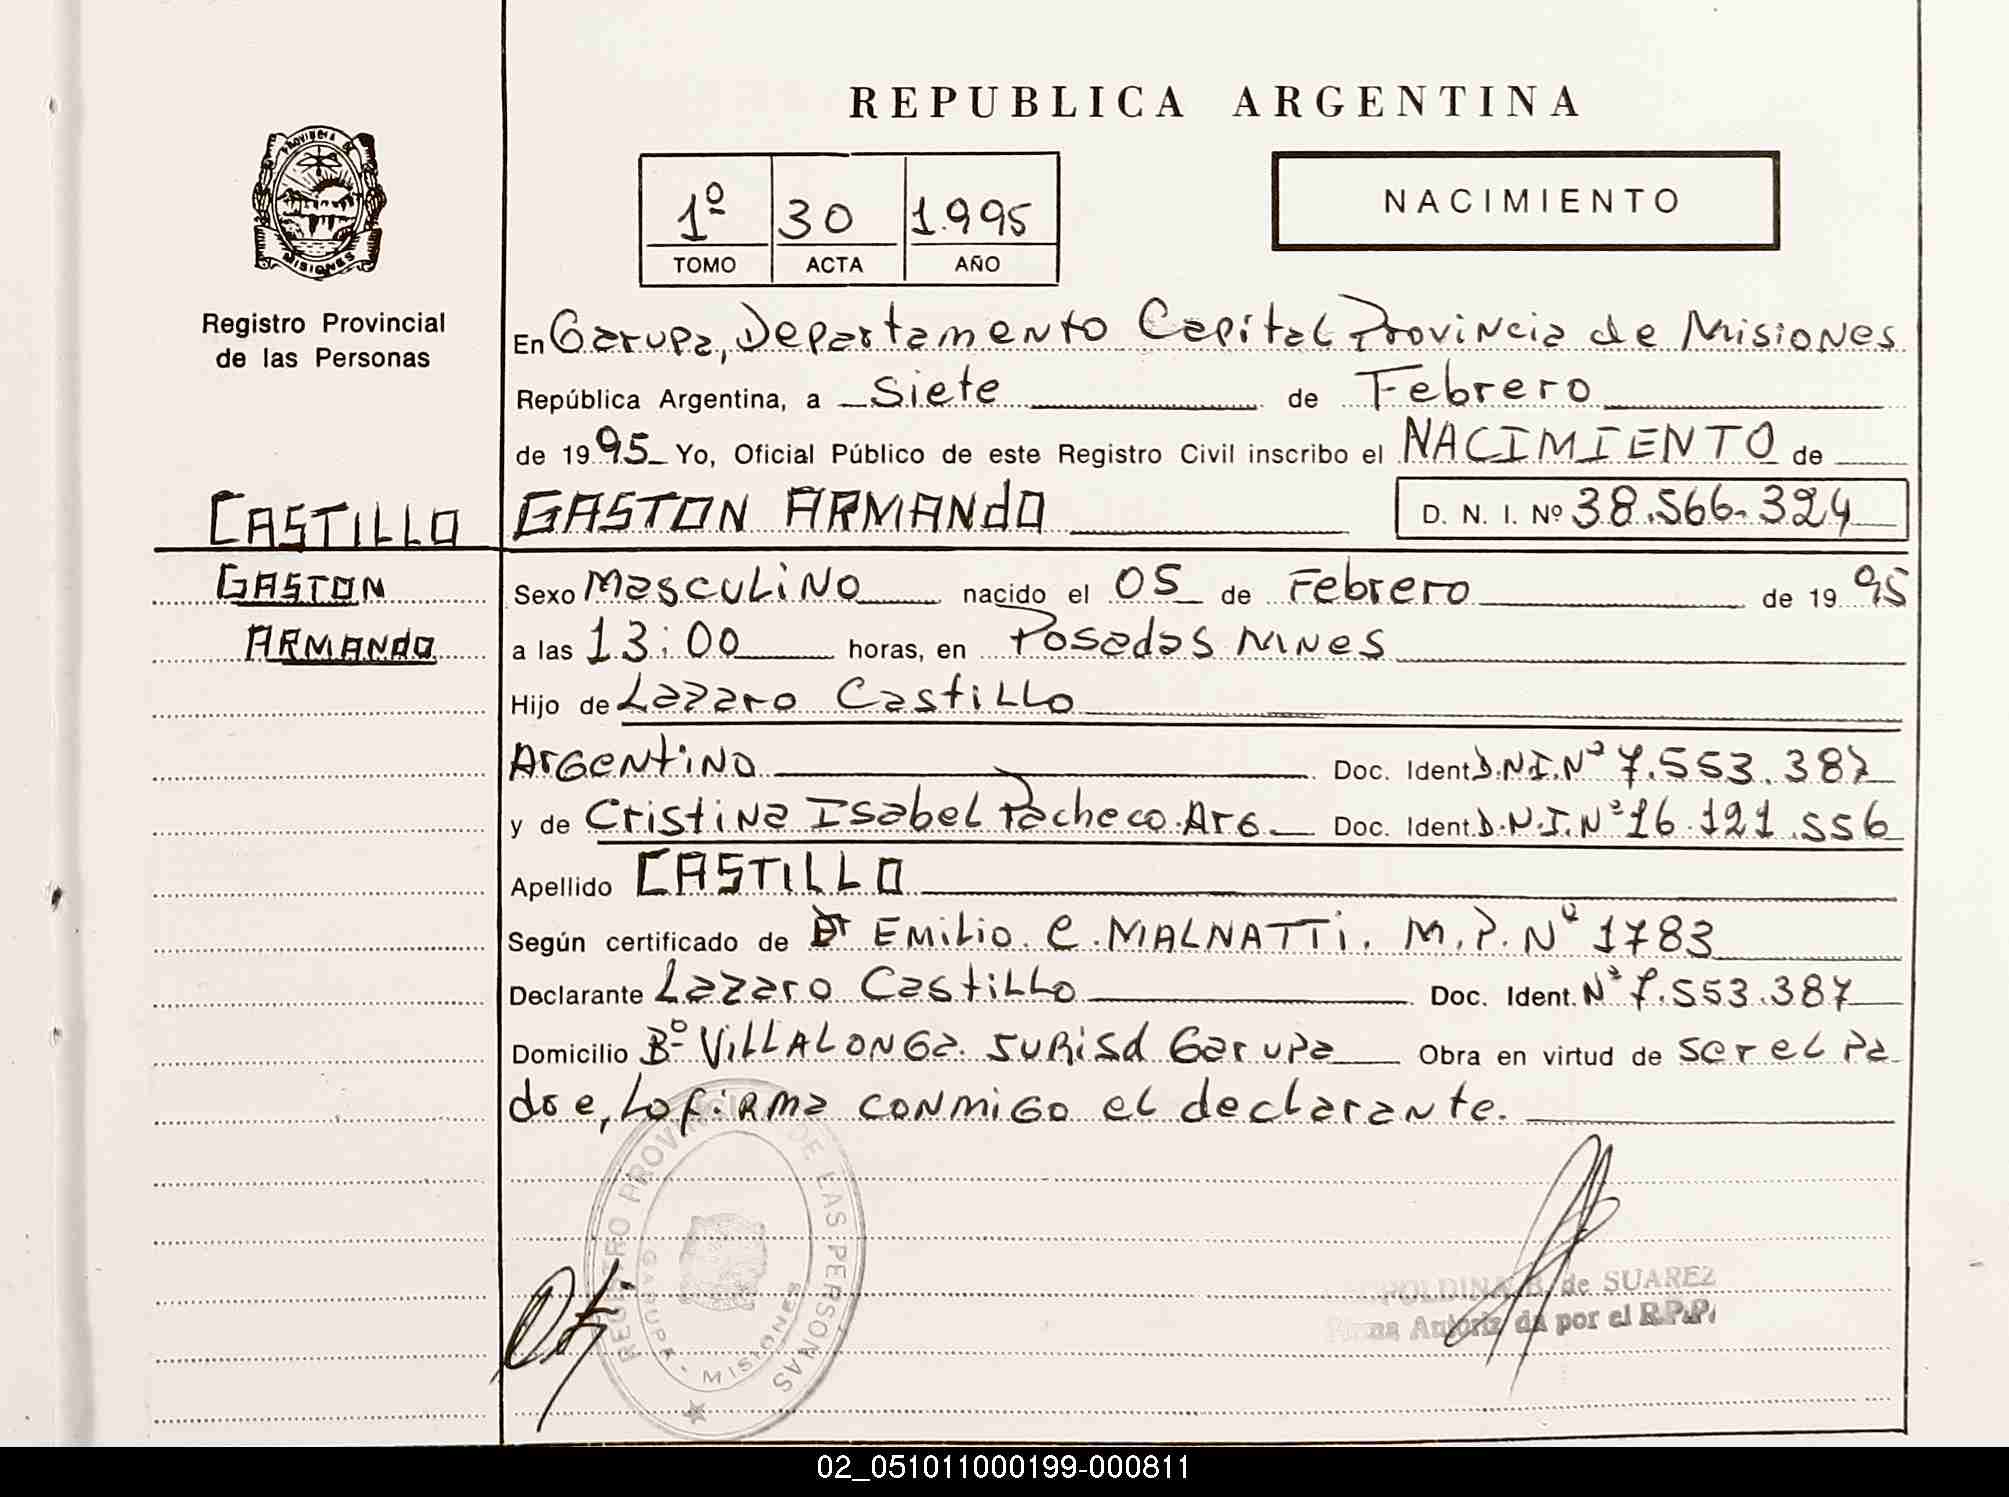 REPUBLICA ARGENTINA
PROVINCIA DE
MISIONES
Registro Provincial
de las Personas
1º 30 1.995
TOMO ACTA AÑO
NACIMIENTO
En Garupa, Departamento Capital Provincia de Misiones
República Argentina, a Siete de Febrero
de 1995 Yo, Oficial Público de este Registro Civil inscribo el NACIMIENTO de
CASTILLO GASTON ARMANDO D. N. I. Nº 38.566.324
GASTON
ARMANDO
Sexo Masculino nacido el 05 de Febrero de 1995
a las 13:00 horas, en Posadas Mnes
Hijo de Lazaro Castillo
Argentino Doc. Ident D.N.I.Nº 7.553.387
y de Cristina Isabel Pacheco.Arg Doc. Ident D.N.I.Nº 16.121.556
Apellido CASTILLO
Según certificado de Dr EMiLio. C. MALNATTi. M.P. Nº 1783
Declarante Lazaro Castillo Doc. Ident. Nº 7.553.387
Domicilio Bº VILLALONGA. JURisd Garupa Obra en virtud de ser el pa
dre, Lo firma conmigo el declarante.
REGISTRO PROVINCIAL DE LAS PERSONAS
GARUPA - MISIONES
B. de SUAREZ
Firma Autorizada por el R.P.P.
02_051011000199-000811